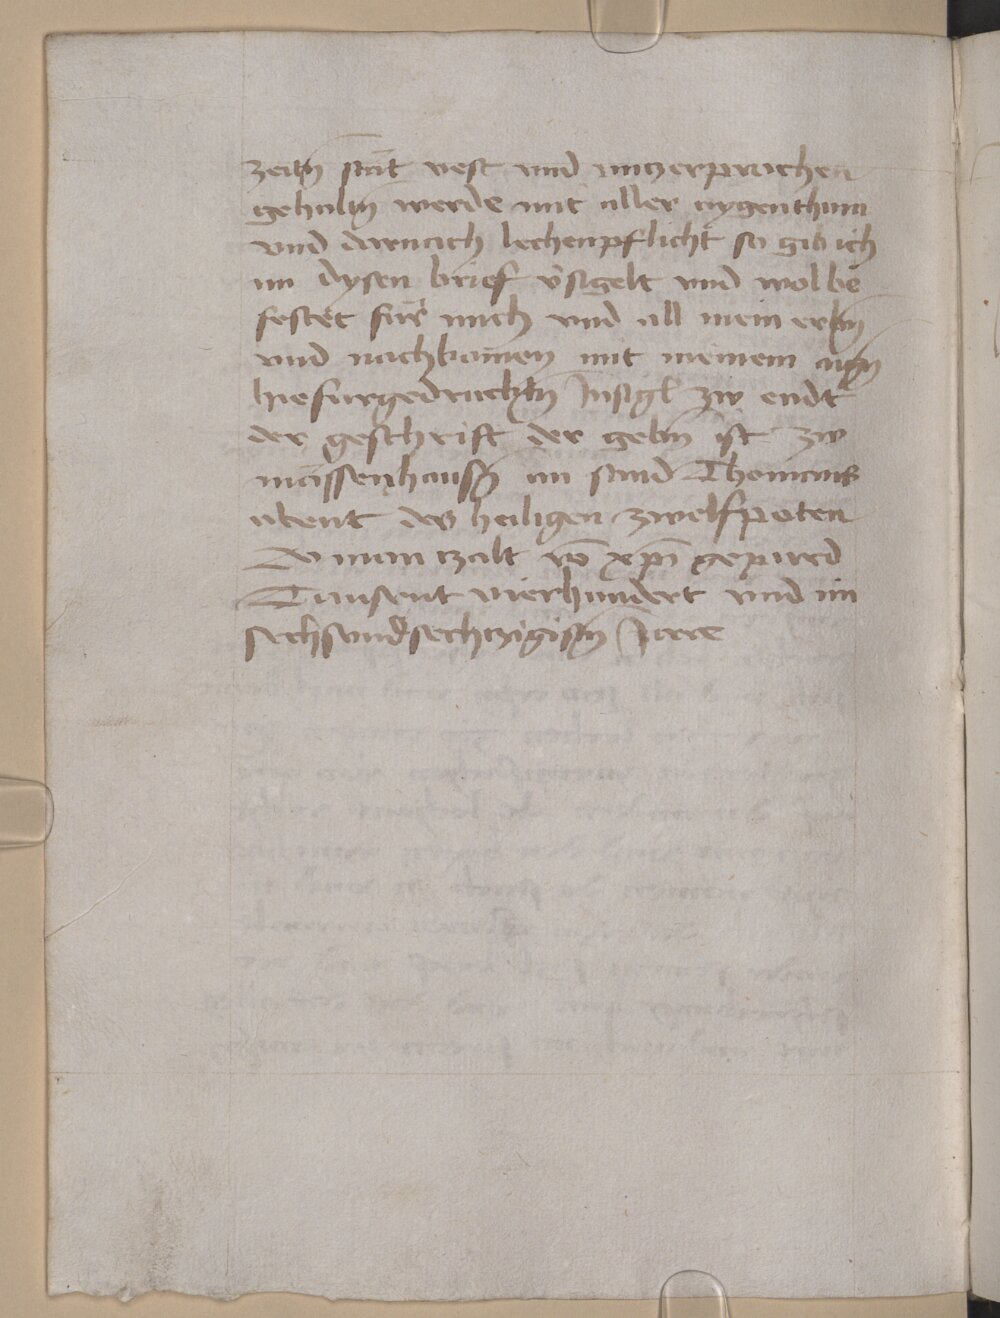 zeitñ stät vest und unczerprochen
gehaltñ werde mit aller aygenthum
und darnach lechenpflicht so gib ich
im dysen brief v̈sigelt und wolbe
festet für mich und all mein erbñ
und nachkomen mit meinem aigñ
hiefurgedrucktñ Insigl zw endt
der geschrift der gebñ ist zw
mässenhausñ an sand Thomans
abent des heiligen zwelfpoten
Do man czalt vō xp̄i gepurd
Tausent vierhundert und im
sechsundsechczigistñ Jare